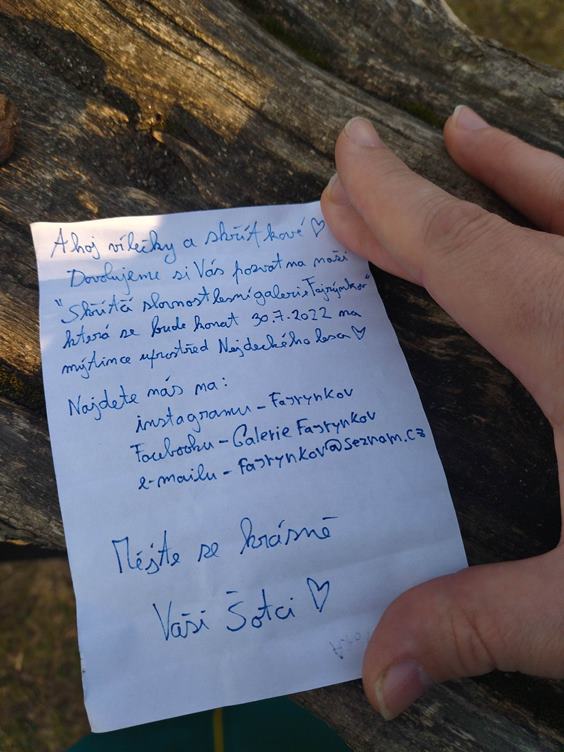 Ahoj vílečky a skřítkové ♡
Dovolujeme si Vás pozvat na naší
"Skřítčí slavnost lesní galerie Fajrýnkov"
která se bude konat 30.7.2022 na
mýtince uprostřed Nejdeckého lesa ♡
Najdete nás na:
instagramu - Fajrynkov
Facebooku - Galerie Fajrynkov
e-mailu - fajrynkov@seznam.cz
Mějte se krásně
Vaši Šotci ♡